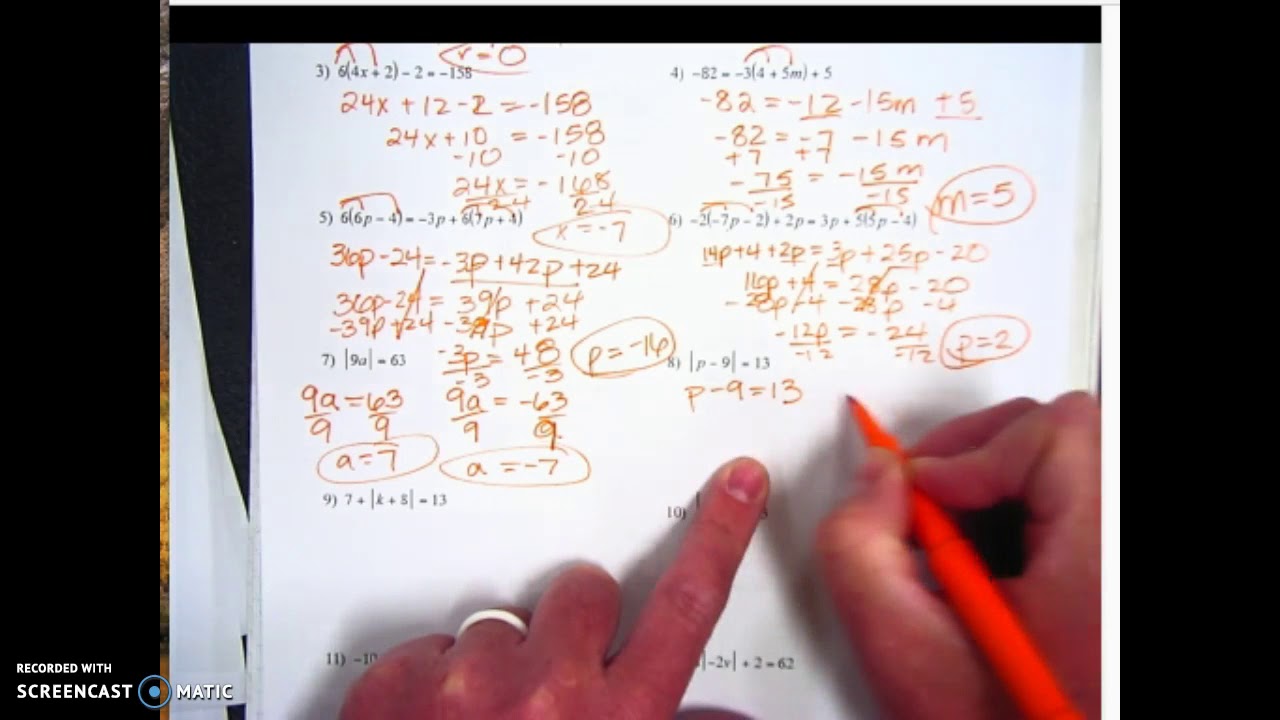 r = 0
3) 6(4x + 2) − 2 = −158
24x + 12 - 2 = -158
24x + 10 = -158
-10 -10
24x = -168
24 24
x = -7
4) −82 = −3(4 + 5m) + 5
-82 = -12 -15m +5
-82 = -7 -15m
+7 +7
-75 = -15m
-15 -15
m = 5
5) 6(6p − 4) = −3p + 6(7p + 4)
36p - 24 = -3p + 42p + 24
36p - 24 = 39p + 24
-39p +24 -39p +24
-3p = 48
-3 -3
p = -16
6) −2(−7p − 2) + 2p = 3p + 5(5p − 4)
14p + 4 + 2p = 3p + 25p - 20
16p + 4 = 28p - 20
-28p -4 -28p -4
-12p = -24
-12 -12
p = 2
7) |9a| = 63
9a = 63 9a = -63
9 9 9 9
a = 7 a = -7
8) |p − 9| = 13
p - 9 = 13
9) 7 + |k + 8| = 13
10)
11) −10
|−2v| + 2 = 62
RECORDED WITH
SCREENCAST MATIC